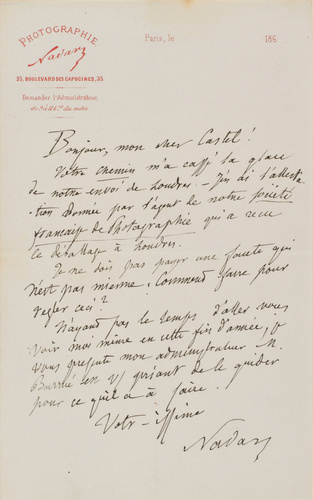 PHOTOGRAPHIE
Nadar
35, BOULEVARD DES CAPUCINES, 35
Demander l'Administrateur
de 9 à 11 h. du matin
Paris, le 186
Bonjour, mon cher Castel!
Votre chemin m'a caffé la glace
de notre envoi de Londres — J'ai dé l'attesta
tion donnée par l'agent de notre Société
française de Photographie qui a reçu
ce déballage à Londres.
Je ne dois pas payer une faute qui
n'est pas mienne. Comment faire pour
régler ceci?
N'ayant pas le temps d'aller vous
voir moi même en cette fin d'année, je
vous présente mon administrateur M.
en Vs priant de le guider
pour ce qu'il a à faire.
Votr-issime
Nadar